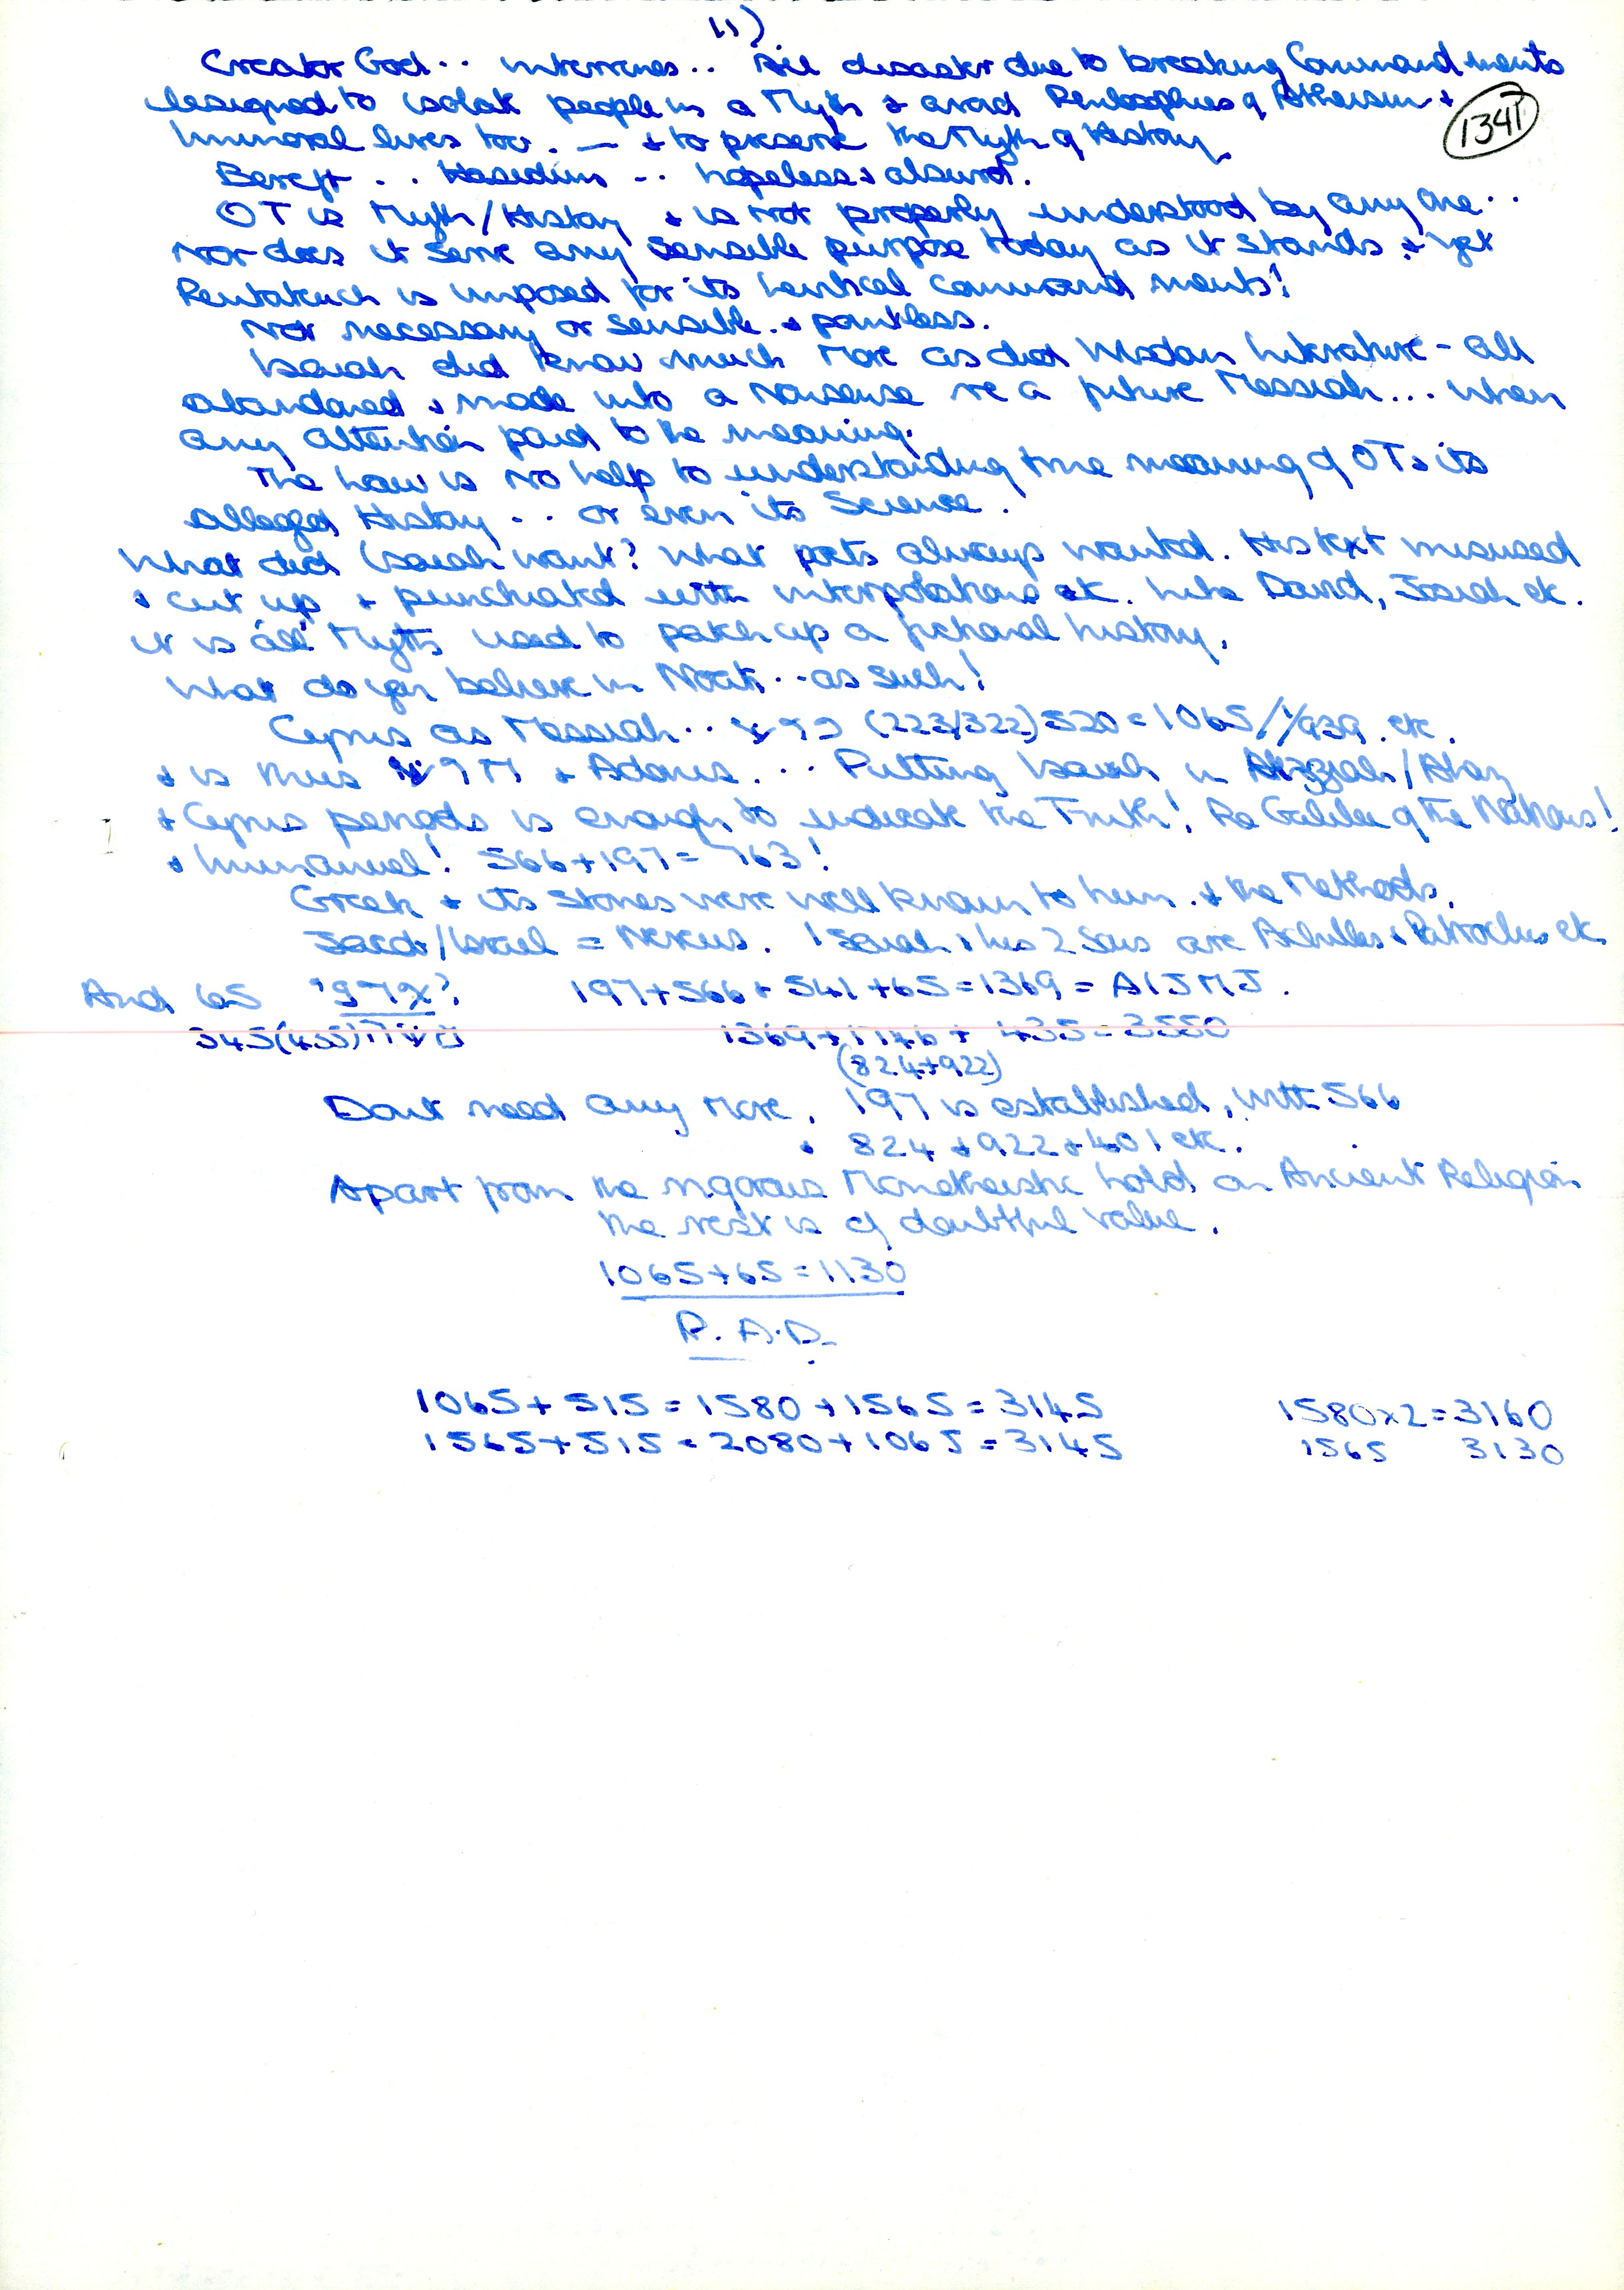 11)
Creator God.. intervenes.. All disaster due to breaking Commandments
designed to isolate people in a Myth + avoid Philosophies of Atheism +
Immoral lives too. — + to preserve the Myth of History.
1341
Bereft .. Hasedim .. hopeless + absurd.
OT is Myth/History + is not properly understood by any one..
Nor does it serve any sensible purpose today as it stands, + yet
Pentateuch is imposed for its Levitical Commandments!
Not necessary or sensible. + pointless.
Isaiah did know much more as did Wisdom Literature - all
abandoned + made into a nonsense re a future Messiah... when
any attention paid to the meaning.
The Law is no help to understanding true meaning of OT + its
alleged History .. or even its Science.
What did Isaiah want? What poets always wanted. His text misused
+ cut up + punctuated with interpolations etc. Like David, Josiah etc.
it is all Myths used to patch up a fictional history.
What do you believe in Noah.. as such!
Cyrus as Messiah.. (223/322) 520 = 1065//939. etc.
+ is thus + Adonis... Putting Isaiah in /Ahaz
+ Cyrus periods is enough to indicate the Truth! Re Galilee of The Nations!
+ Immanuel! 566+197=763!
Greek + its stories were well known to him. + the Methods.
Jacob/Israel = Nereus. Isaiah + his 2 Sons are Achilles + Patroclus etc.
And 65 ? 197+566+541+65=1369=A(JMJ.
345(455) 1369+1746+435=3550
(824+922)
Dont need any more. 197 is established, with 566
+ 824+922+401 etc.
Apart from the rigorous Monotheistic hold on Ancient Religion
the rest is of doubtful value.
1065+65=1130
R.A.D.
1065+515=1580+1565=3145 1580x2=3160
1565+515=2080+1065=3145 1565 3130